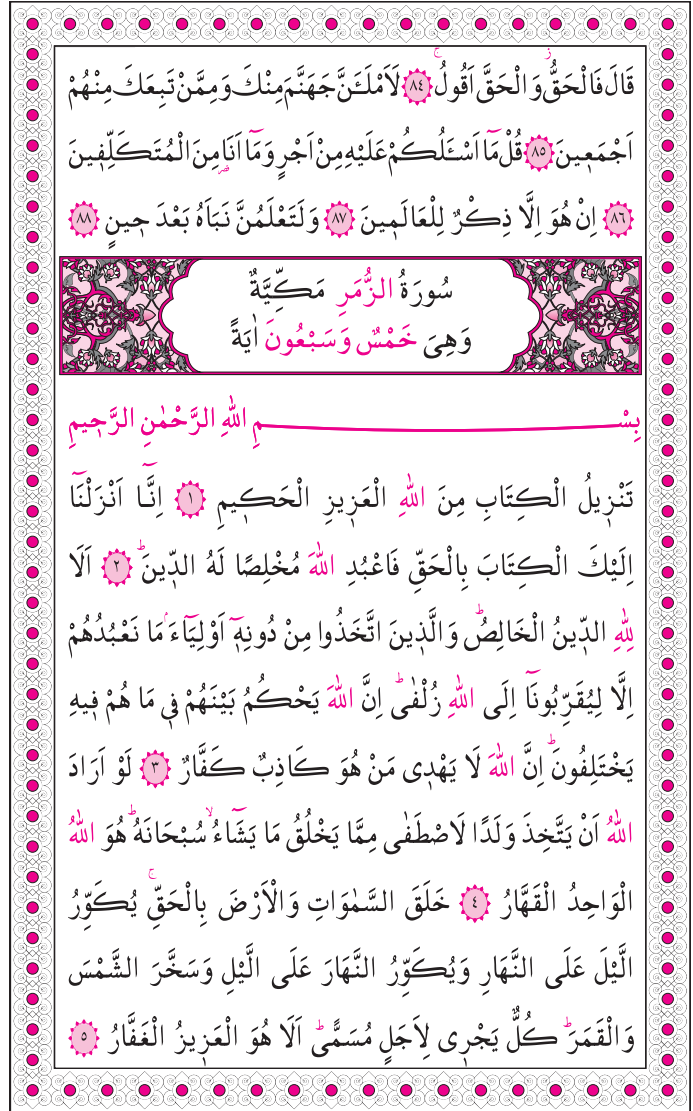 قَالَ فَالْحَقُّۘ وَالْحَقَّ اَقُولُۚ ﴿٨٤﴾ لَاَمْلَـَٔنَّ جَهَنَّمَ مِنْكَ وَمِمَّنْ تَبِعَكَ مِنْهُمْ
اَجْمَع۪ينَ ﴿٨٥﴾ قُلْ مَٓا اَسْـَٔلُكُمْ عَلَيْهِ مِنْ اَجْرٍ وَمَٓا اَنَا۬ مِنَ الْمُتَكَلِّف۪ينَ
﴿٨٦﴾ اِنْ هُوَ اِلَّا ذِكْرٌ لِلْعَالَم۪ينَ ﴿٨٧﴾ وَلَتَعْلَمُنَّ نَبَاَهُ بَعْدَ ح۪ينٍ ﴿٨٨﴾
سُورَةُ الزُّمَرِ مَكِّيَّةٌ
وَهِىَ خَمْسٌ وَسَبْعُونَ اٰيَةً
بِسْمِ اللّٰهِ الرَّحْمٰنِ الرَّح۪يمِ
تَنْز۪يلُ الْكِتَابِ مِنَ اللّٰهِ الْعَز۪يزِ الْحَك۪يمِ ﴿١﴾ اِنَّٓا اَنْزَلْنَٓا
اِلَيْكَ الْكِتَابَ بِالْحَقِّ فَاعْبُدِ اللّٰهَ مُخْلِصًا لَهُ الدّ۪ينَۜ ﴿٢﴾ اَلَا
لِلّٰهِ الدّ۪ينُ الْخَالِصُۜ وَالَّذ۪ينَ اتَّخَذُوا مِنْ دُونِه۪ٓ اَوْلِيَٓاءَۢ مَا نَعْبُدُهُمْ
اِلَّا لِيُقَرِّبُونَٓا اِلَى اللّٰهِ زُلْفٰىۜ اِنَّ اللّٰهَ يَحْكُمُ بَيْنَهُمْ ف۪ى مَا هُمْ ف۪يهِ
يَخْتَلِفُونَۜ اِنَّ اللّٰهَ لَا يَهْد۪ى مَنْ هُوَ كَاذِبٌ كَفَّارٌ ﴿٣﴾ لَوْ اَرَادَ
اللّٰهُ اَنْ يَتَّخِذَ وَلَدًا لَاصْطَفٰى مِمَّا يَخْلُقُ مَا يَشَٓاءُۙ سُبْحَانَهُۜ هُوَ اللّٰهُ
الْوَاحِدُ الْقَهَّارُ ﴿٤﴾ خَلَقَ السَّمٰوَاتِ وَالْاَرْضَ بِالْحَقِّۚ يُكَوِّرُ
الَّيْلَ عَلَى النَّهَارِ وَيُكَوِّرُ النَّهَارَ عَلَى الَّيْلِ وَسَخَّرَ الشَّمْسَ
وَالْقَمَرَۜ كُلٌّ يَجْر۪ى لِاَجَلٍ مُسَمًّىۜ اَلَا هُوَ الْعَز۪يزُ الْغَفَّارُ ﴿٥﴾